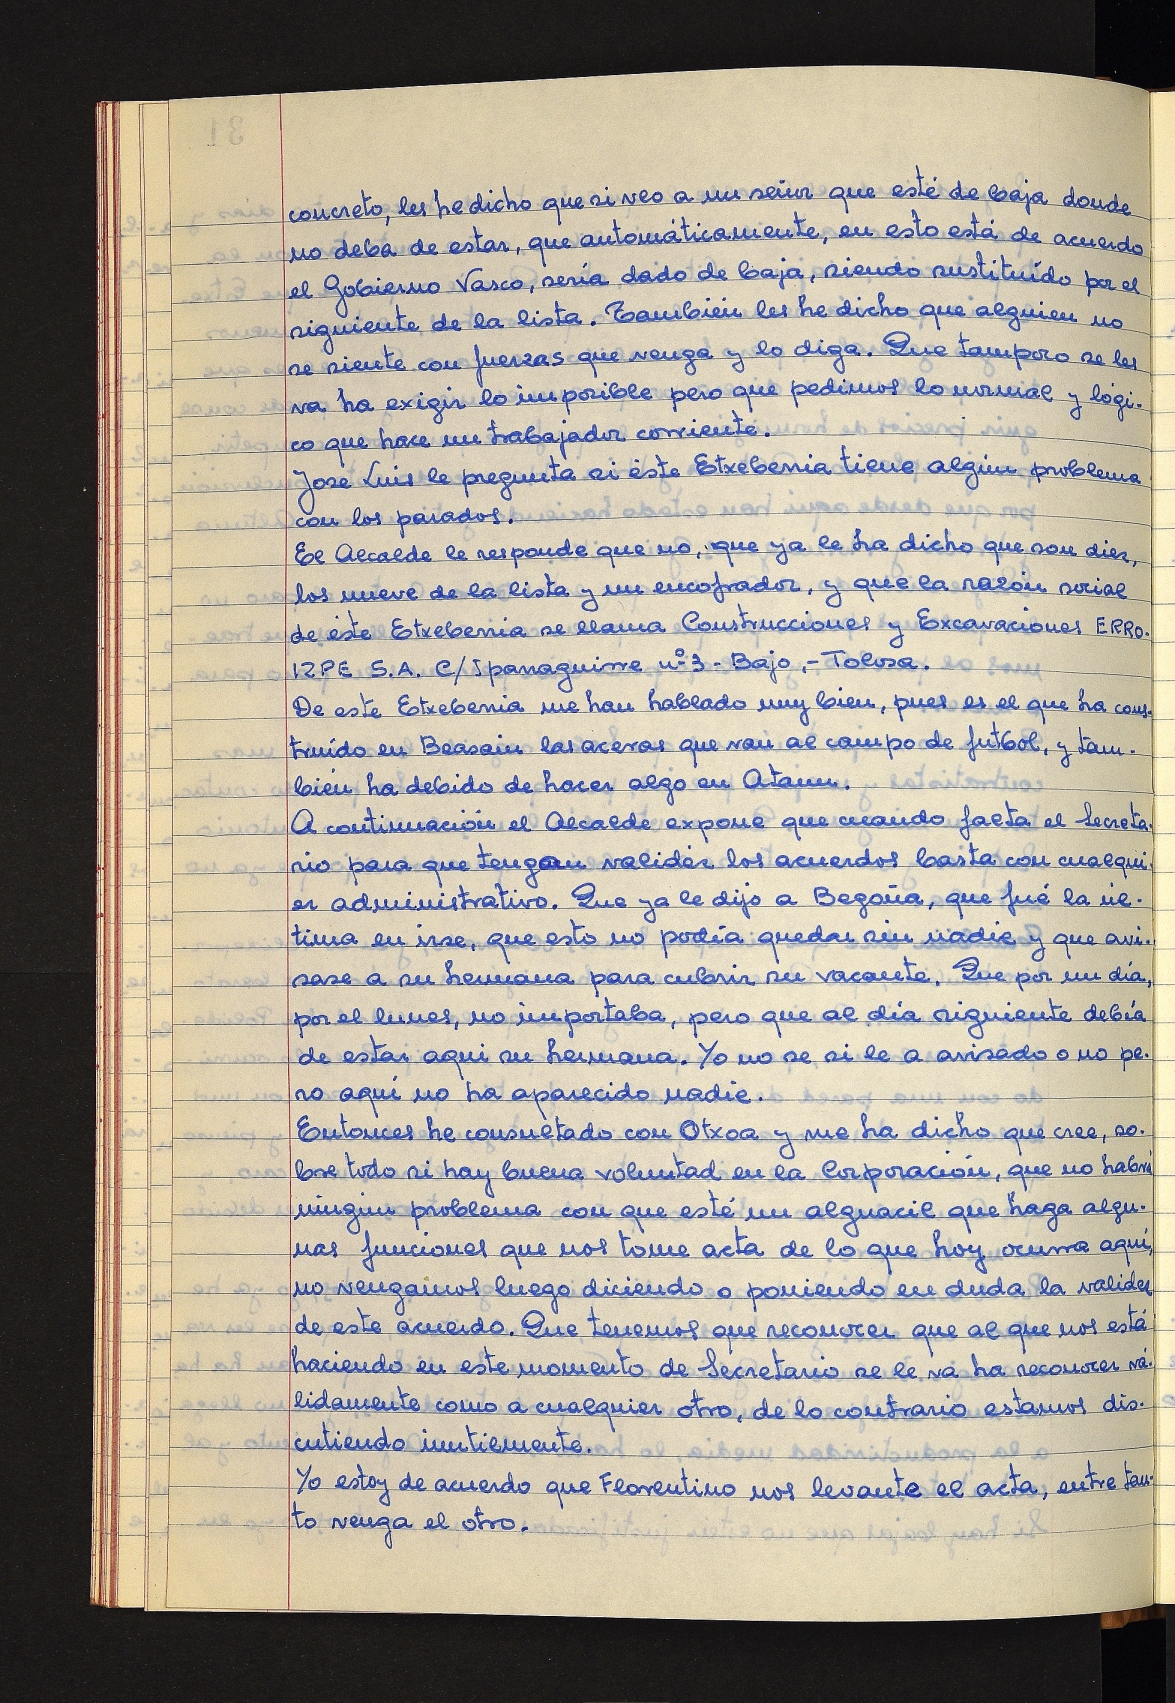 concreto, les he dicho que si veo a un señor que esté de baja donde
no deba de estar, que automáticamente, en esto está de acuerdo
el Gobierno Vasco, sería dado de baja, siendo sustituído por el
siguiente de la lista. También les he dicho que alguien no
se siente con fuerzas que venga y lo diga. Que tampoco se les
va ha exigir lo imposible pero que pedimos lo normal y lógi-
co que hace un trabajador corriente.
Jose Luis le pregunta si éste Etxeberria tiene algún problema
con los parados.
El Alcalde le responde que no, que ya le ha dicho que son diez,
los nueve de la lista y un encofrador, y que la razón social
de éste Etxeberria se llama Construcciones y Excavaciones ERRO-
IZPE S.A. C/ Iparraguirre nº 3 - Bajo,- Tolosa.
De este Etxeberria me han hablado muy bien, pues es el que ha cons-
truído en Beasain las aceras que van al campo de futbol, y tam-
bién ha debido de hacer algo en Ataun.
A continuación el Alcalde expone que cuando falta el Secreta-
rio para que tengan validez los acuerdos basta con cualqui-
er administrativo. Que ya le dijo a Begoña, que fué la úl-
tima en irse, que esto no podía quedar sin nadie y que avi-
sase a su hermana para cubrir su vacante. Que por un día,
por el lunes, no importaba, pero que al día siguiente debía
de estar aqui su hermana. Yo no se si le a avisado o no pe-
ro aquí no ha aparecido nadie.
Entonces he consultado con Otxoa y me ha dicho que cree, so-
bre todo si hay buena voluntad en la Corporación, que no habrá
ningún problema con que esté un alguacil que haga algu-
nas funciones que nos tome acta de lo que hoy ocurra aquí,
no vengamos luego diciendo o poniendo en duda la validez
de este acuerdo. Que tenemos que reconocer que al que nos está
haciendo en este momento de Secretario se le va ha reconocer vá-
lidamente como a cualquier otro, de lo contrario estamos dis-
cutiendo inutilmente.
Yo estoy de acuerdo que Florentino nos levante el acta, entre tan-
to venga el otro.